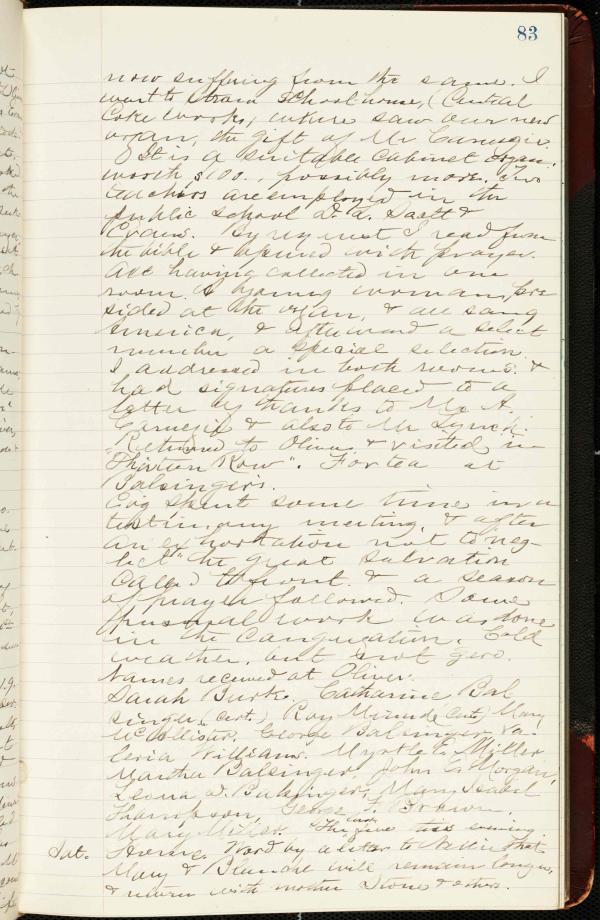 83
now suffering from the same. I
went to Strawn School house, (Central
Coke Works, where saw our new
organ, the gift of Mr Carnegie.
It is a suitable Cabinet organ.
worth $100., possibly more. Two
teachers are employed in the
public school D. A. &
Evans. By request I read from
the bible & opened with prayer.
All having collected in one
room. A young woman, pre
sided at the organ, & all sang
America, & afterward a select
number a special selection.
I addressed in both rooms. &
had signatures placed to a
letter of thanks to Mr A.
Carnegie & also to Mr Lynch.
Returned to Oliver & visited in
"Thirteen Row". For tea at
Balsinger's.
Evg spent some time in a
testimony meeting, & after
an exhortation not to neg-
lect "the great Salvation
Called to front & a season
of prayer followed. Some
personal work was done
in the congregation. Cold
weather, but not zero.
Names received at Oliver.
Sarah Burk. Catharine Bal
singer (Cert.) Roy (Cert) Mary
McCollister, George Balsinger, Va-
leria Williams. Myrtle E. Miller
Martha Balsinger, John C. Morgan,
Leona D. Balsinger, Mary Isabel
Thompson, George F. Brown.
Mary Miller. evening.
Sat. Home. Word by a letter to Nellie that
Mary & Blanche will remain longer,
& return with mother Stone & others.